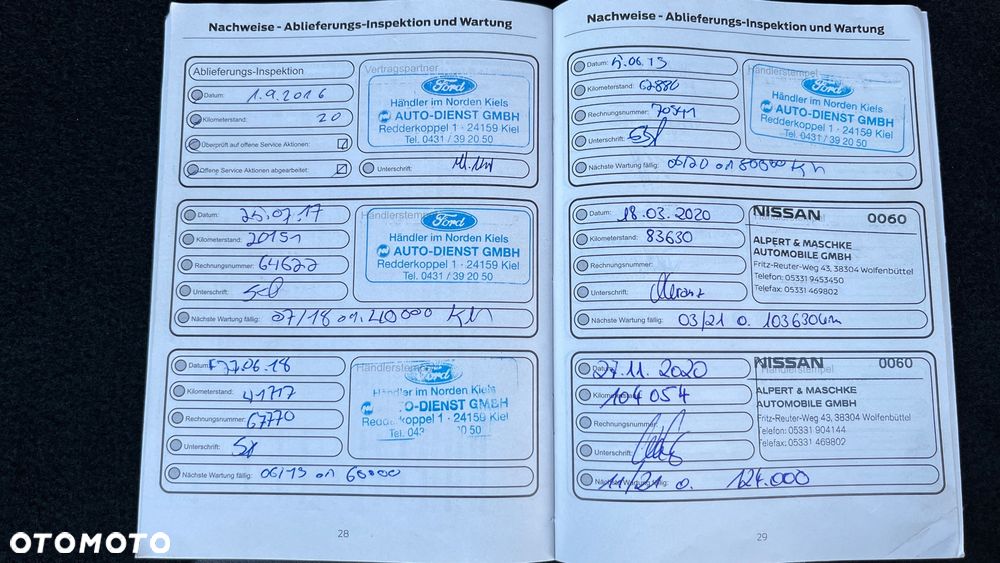 Nachweise - Ablieferungs-Inspektion und Wartung
Ablieferungs-Inspektion
Vertragspartner
Datum: 1.9.2016
Kilometerstand: 20
Überprüft auf offene Service Aktionen:
Offene Service Aktionen abgearbeitet:
Ford
Händler im Norden Kiels
AUTO-DIENST GMBH
Redderkoppel 1 · 24159 Kiel
Tel. 0431 / 39 20 50
Unterschrift:
Datum: 25.07.17
Kilometerstand: 20151
Rechnungsnummer: 64622
Unterschrift:
Händlerstempel
Ford
Händler im Norden Kiels
AUTO-DIENST GMBH
Redderkoppel 1 · 24159 Kiel
Tel. 0431 / 39 20 50
Nächste Wartung fällig: 07/18 01. 40000 KM
Datum: 27.06.18
Kilometerstand: 41717
Rechnungsnummer: 67770
Unterschrift:
Händlerstempel
Ford
Händler im Norden Kiels
-DIENST GMBH
Redde koppel 1 · 24159 Kiel
Tel. 043 20 50
Nächste Wartung fällig: 06/19 01 60000
28
Nachweise - Ablieferungs-Inspektion und Wartung
Datum: .06.19
Kilometerstand: 62880
Rechnungsnummer: 70541
Unterschrift:
Händlerstempel
Ford
Händler im Norden Kiels
AUTO-DIENST GMBH
Redderkoppel 1 · 24159 Kiel
Tel. 0431 / 39 20 50
Nächste Wartung fällig: 06/20 01 80000 KM
Datum: 18.03.2020
Kilometerstand: 83630
Rechnungsnummer:
Unterschrift:
NISSAN 0060
ALPERT & MASCHKE
AUTOMOBILE GMBH
Fritz-Reuter-Weg 43, 38304 Wolfenbüttel
Telefon: 05331 9453450
Telefax: 05331 469802
Nächste Wartung fällig: 03/21 o. 103630km
Datum: 27.11.2020
Kilometerstand: 104054
Rechnungsnummer:
Unterschrift:
Händlerstempel
NISSAN 0060
ALPERT & MASCHKE
AUTOMOBILE GMBH
Fritz-Reuter-Weg 43, 38304 Wolfenbüttel
Telefon: 05331 904144
Telefax: 05331 469802
Nächste Wartung fällig: 11/21 o. 124.000
29
OTOMOTO